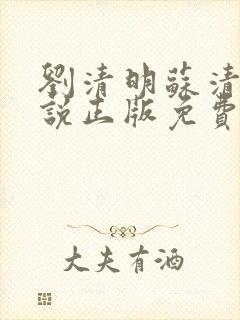 劉清明蘇清
說正版免費
大夫有酒